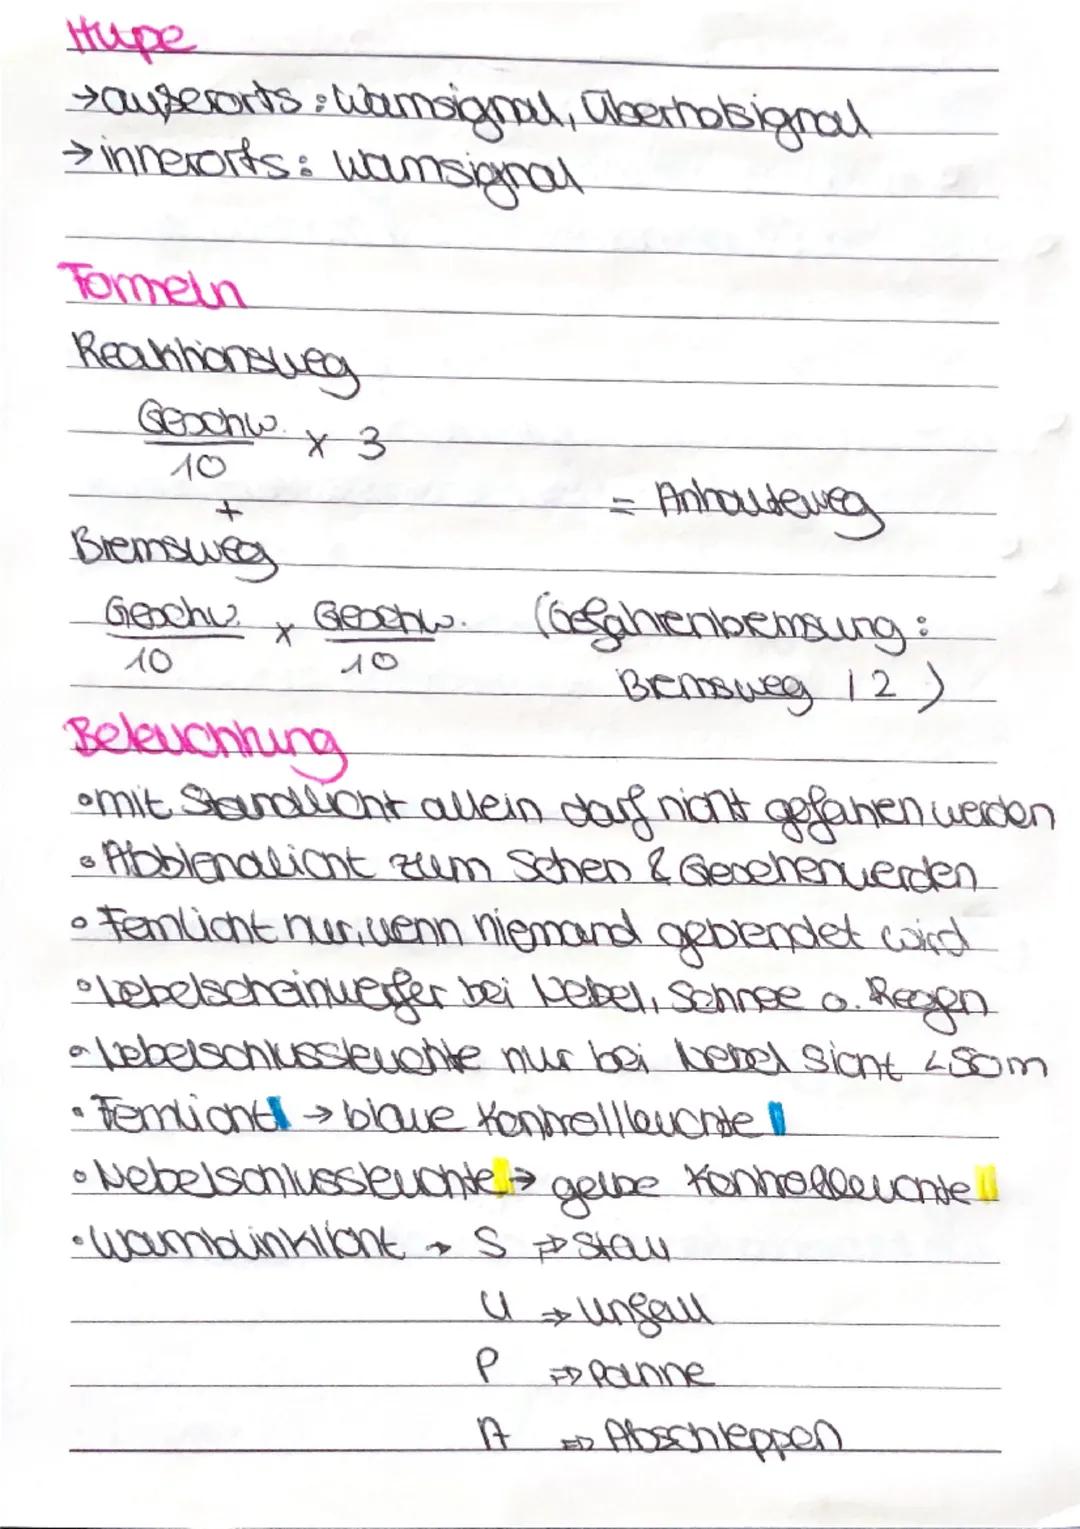 Hupe
→außerorts: Warnsignal, Überholsignal
→innerorts: Warnsignal
Formeln
Reaktionsweg
Geschw.
10
x 3
+
= Anhalteweg
Bremsweg
Geschw. x Geschw.
10 10
(Gefahrenbremsung:
Bremsweg / 2)
Beleuchtung
• mit Standlicht allein darf nicht gefahren werden
• Abblendlicht zum Sehen & Gesehenwerden
• Fernlicht nur, wenn niemand geblendet wird
• Nebelscheinwerfer bei Nebel, Schnee o. Regen
• Nebelschlussleuchte nur bei Nebel Sicht <50m
• Fernlicht → blaue Kontrollleuchte
• Nebelschlussleuchte → gelbe Kontrollleuchte
• Warnblinklicht → S ⇒ Stau
U ⇒ Unfall
P ⇒ Panne
A ⇒ Abschleppen